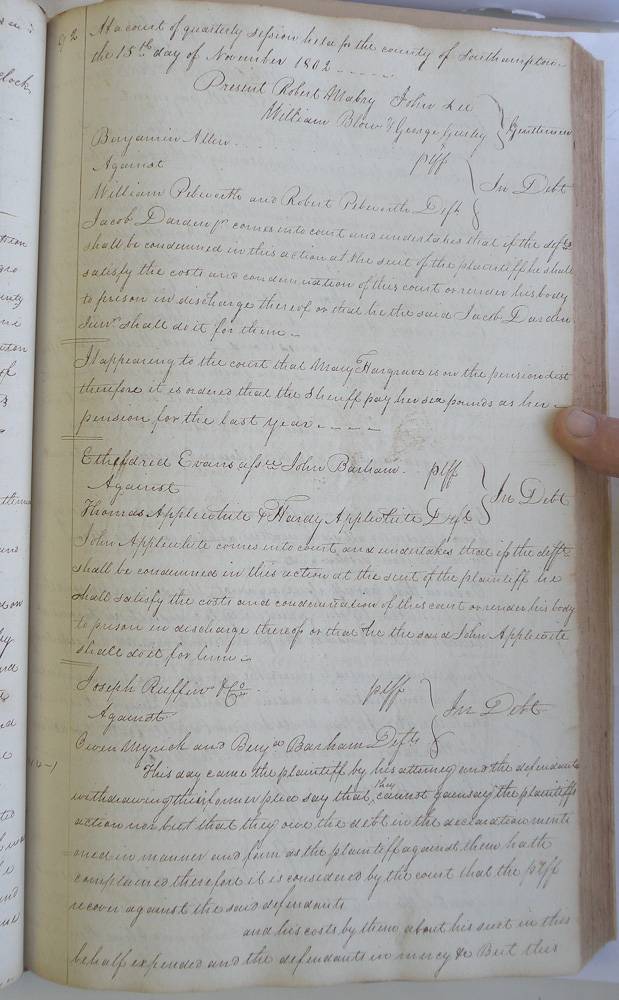 92 At a court of quarterly session held for the county of Southampton
the 15th day of November 1802 - - - - -
Present Robert Mabry John Lee
William Blow & George Gurley Gentlemen
Benjamin Allen . . pltff
Against In Debt
William Pebworth and Robert Pebworth Deft
Jacob Darden jr comes into court and undertakes that if the defts
shall be condemned in this action at the suit of the plaintiff he shall
satisfy the costs and condemnation of this court or render his body
to prison in discharge thereof or that he the said Jacob Darden
Junr shall do it for them -
It appearing to the court that Mary Hargrave is on the pension list
therefore it is ordered that the Sheriff pay her six pounds as her
pension for the last year - - - -
Etheldred Evans asse John Barham . pltff
Against In Debt
Thomas Applewhite & Hardy Applewhite Defts
John Applewhite comes into court and undertakes that if the defts
shall be condemned in this action at the suit of the plaintiff he
shall satisfy the costs and condemnation of this court or render his body
to prison in discharge thereof or that he the said John Applewite
shall do it for him -
Joseph Ruffin & Co . . . pltff
Against In Debt
Owen Myrick and Benja Barham Defts
This day came the plaintiff by his attorney and the defendants
withdrawing their former plea say that they cannot gainsay the plaintiffs
action nor but that they owe the debt in the declaration menti
oned in manner and form as the plaintiff against them hath
complained therefore it is considered by the court that the pltff
recover against the said defendants
and his costs by them about his suit in this
behalf expended and the defendants in mercy &c But this